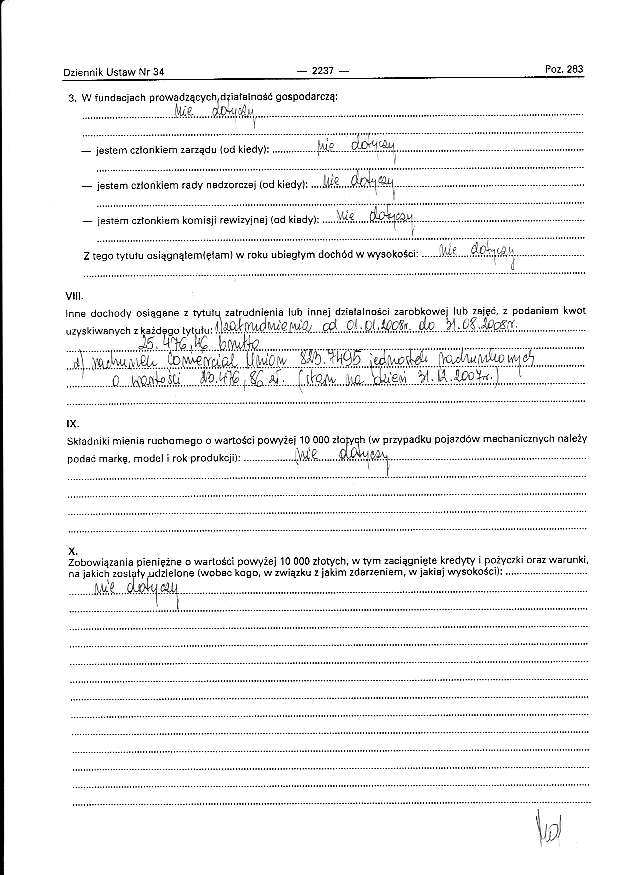 Dziennik Ustaw Nr 34 — 2237 — Poz. 283
3. W fundacjach prowadzących działalność gospodarczą:
Nie dotyczy
— jestem członkiem zarządu (od kiedy): Nie dotyczy
— jestem członkiem rady nadzorczej (od kiedy): Nie dotyczy
— jestem członkiem komisji rewizyjnej (od kiedy): Nie dotyczy
Z tego tytułu osiągnąłem(ęłam) w roku ubiegłym dochód w wysokości: Nie dotyczy
VIII.
Inne dochody osiągane z tytułu zatrudnienia lub innej działalności zarobkowej lub zajęć, z podaniem kwot
uzyskiwanych z każdego tytułu: 1) zatrudnienia od 01.01.2008r. do 31.08.2008r.
25.476,46 brutto
2) rachunek Comercial Union 825.7495 jednostek rachunkowych
o wartości 23.476,86 zł. (stan na dzień 31.12.2007r.)
IX.
Składniki mienia ruchomego o wartości powyżej 10 000 złotych (w przypadku pojazdów mechanicznych należy
podać markę, model i rok produkcji): Nie dotyczy
X.
Zobowiązania pieniężne o wartości powyżej 10 000 złotych, w tym zaciągnięte kredyty i pożyczki oraz warunki,
na jakich zostały udzielone (wobec kogo, w związku z jakim zdarzeniem, w jakiej wysokości):
Nie dotyczy